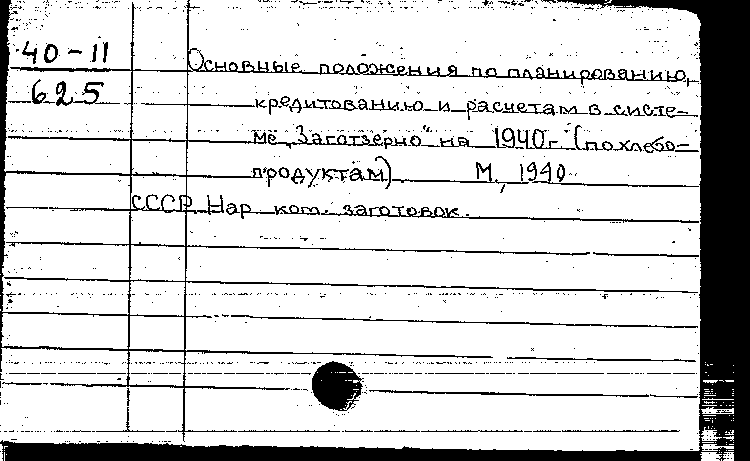 40-11
625
Основные положения по планированию,
кредитованию и расчетам в систе-
ме „Заготзерно" на 1940г. (по хлебо-
продуктам) М., 1940
СССР. Нар. ком. заготовок.